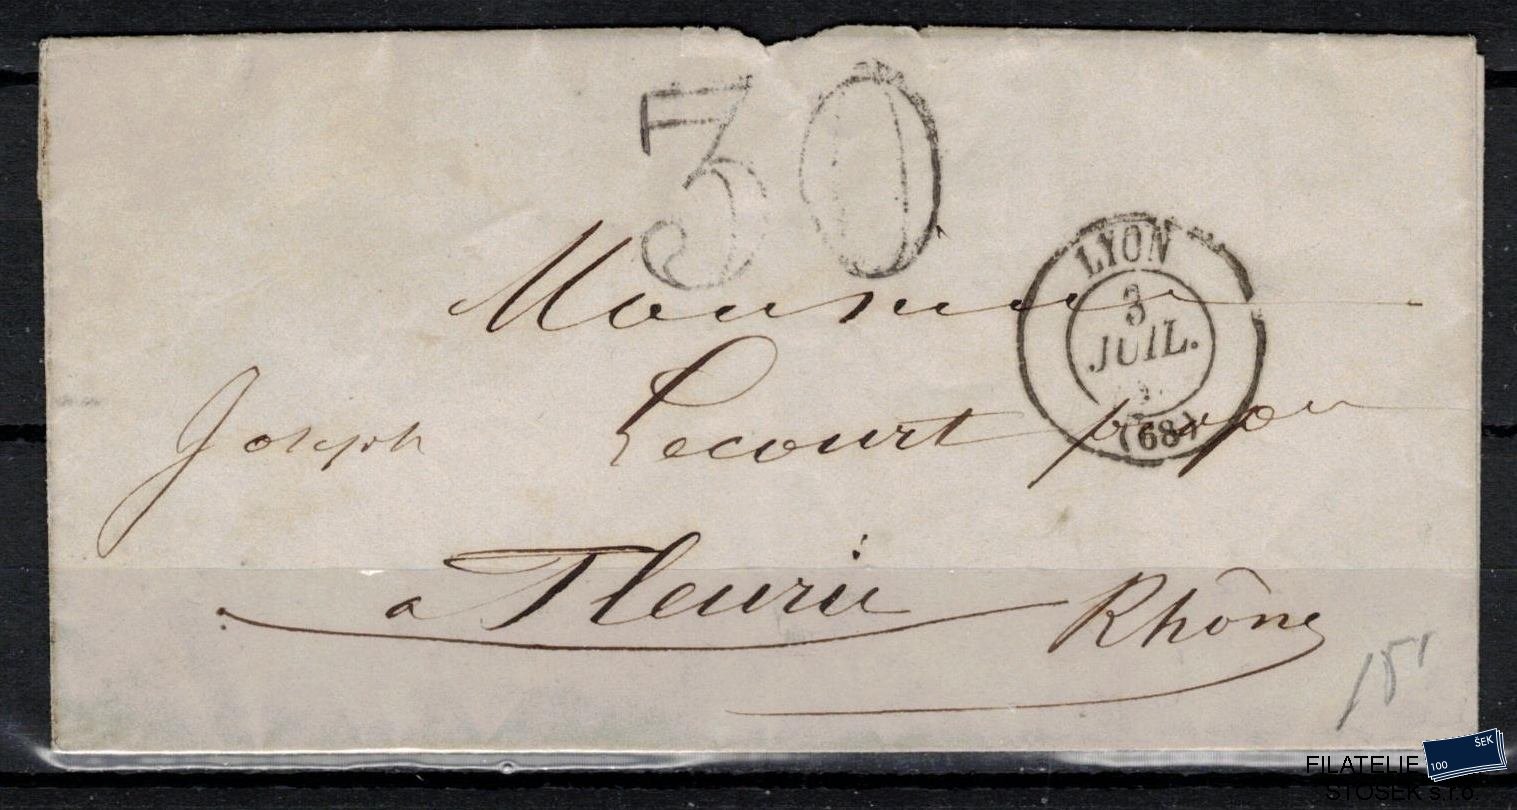 30
LYON
3
JUIL.
(68)
Monsieur
Joseph Lecourt
a Fleurie Rhône
15
FILATELIE
STOSEK s.r.o.
100
ŠEK